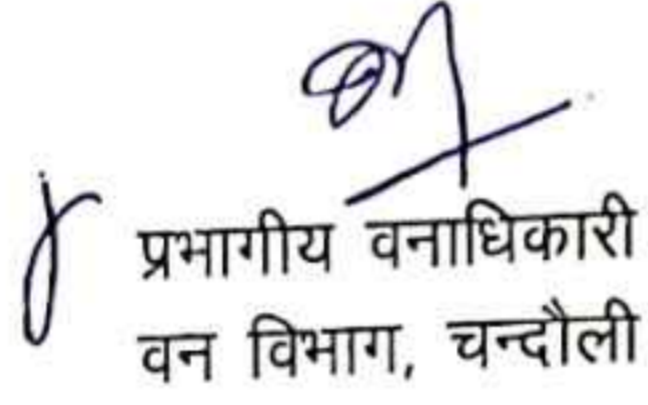 प्रभागीय वनाधिकारी
वन विभाग, चन्दौली